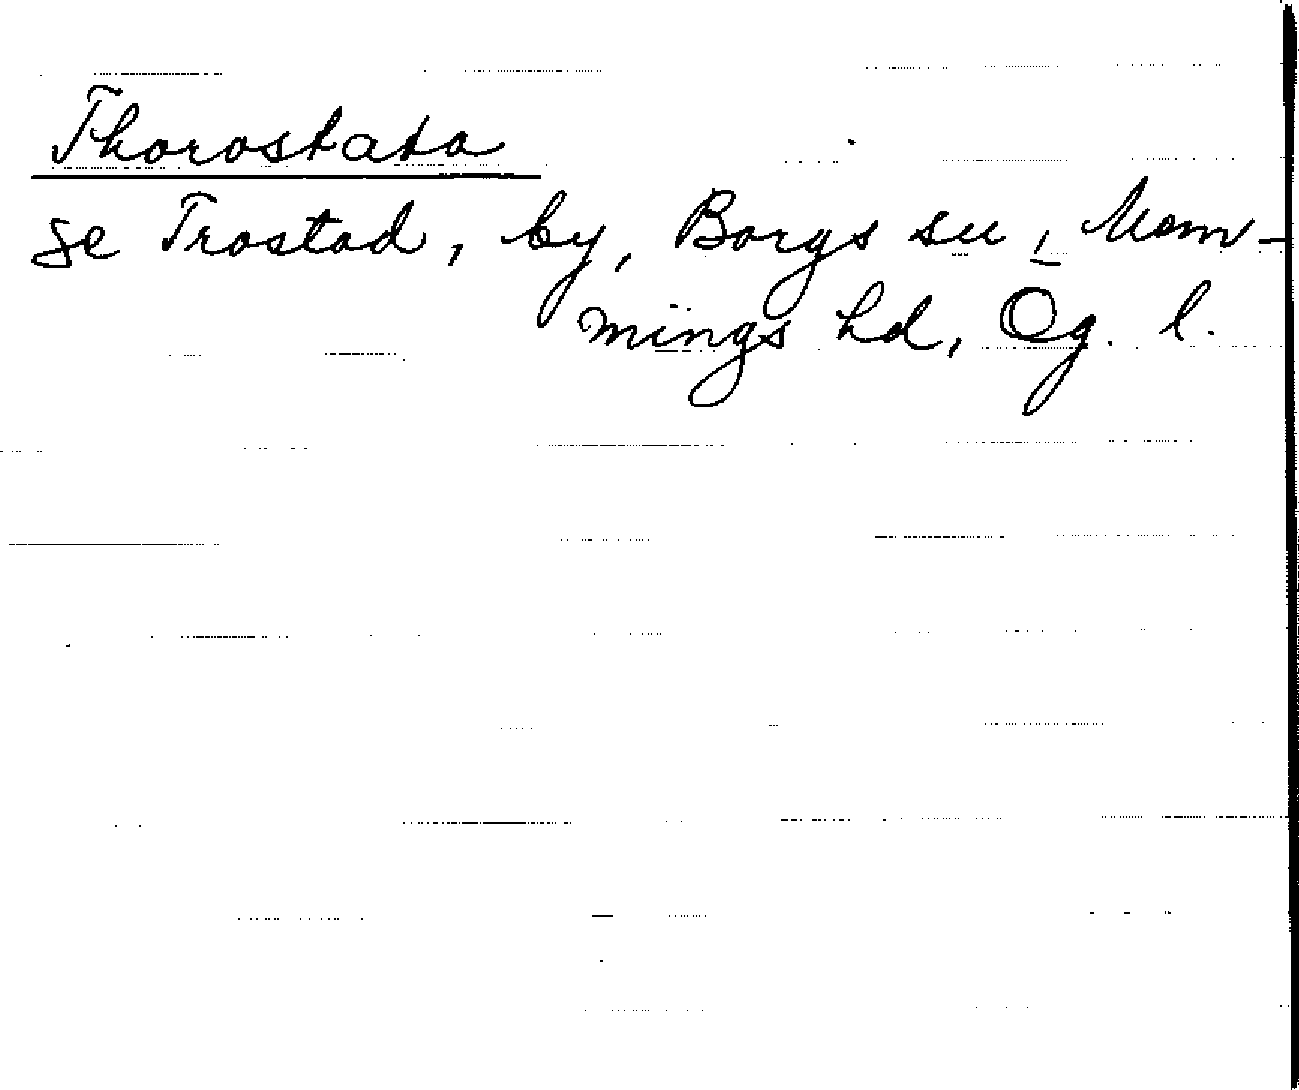 Thorostata
se Trostad, by, Borgs su, Mem-
mings hd, Ög. l.